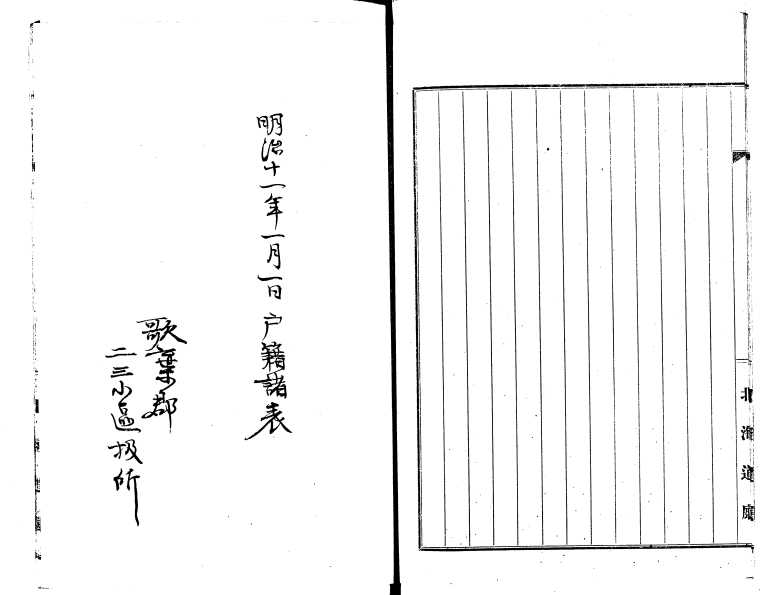 北海道廳
明治十一年一月一日戸籍諸表
歌棄郡
二三小區扱所